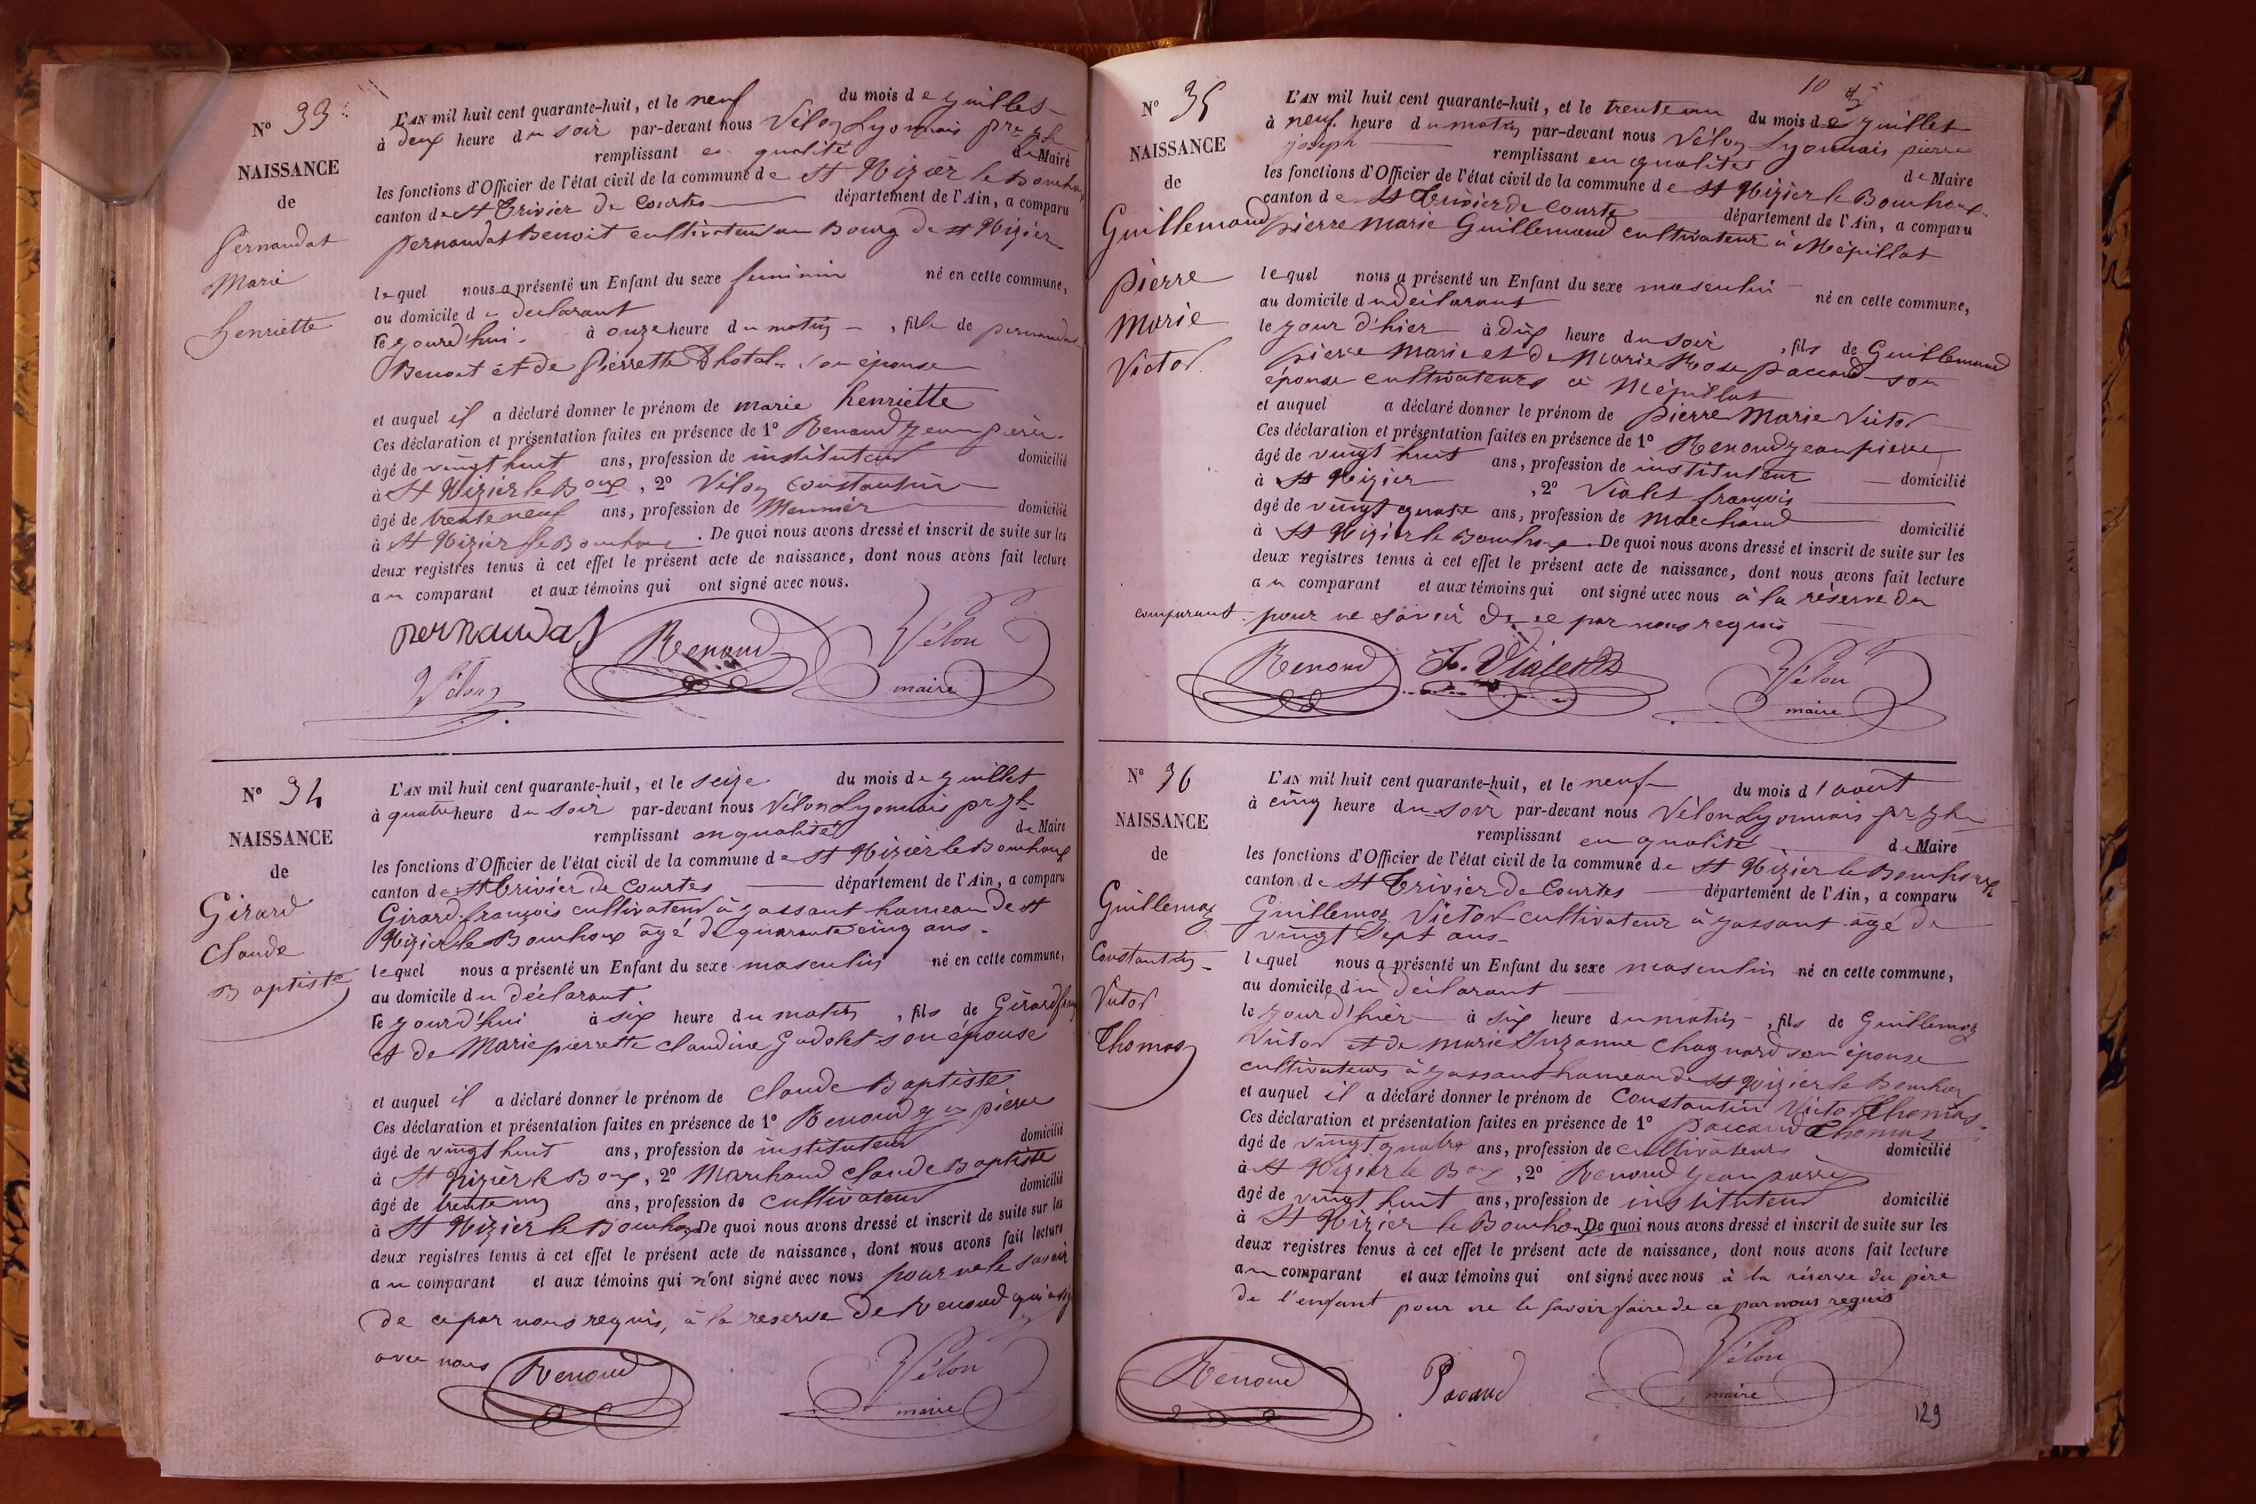 N° 33
NAISSANCE
de
Pernaudat
Marie
henriette
L'AN mil huit cent quarante-huit, et le neuf du mois de juillet
à deux heure du soir par-devant nous Vélon Lyonnais prre jh
remplissant en qualité de Maire
les fonctions d'Officier de l'état civil de la commune de St Nizier le Bouchoux
canton de St Trivier de Courtes département de l'Ain, a comparu
pernaudat Benoit cultivateur au Bourg de st Nizier
lequel nous a présenté un Enfant du sexe feminin né en cette commune,
au domicile du declarant
le jourd'hui à onze heure du matin, fille de pernaudat
Benoit et de Pierrette son épouse
et auquel il a déclaré donner le prénom de marie henriette
Ces déclaration et présentation faites en présence de 1° Renoud jean pierre
âgé de vingt huit ans, profession de instituteur domicilié
à St Nizier le Boux, 2° Vélon Constantin
âgé de trente neuf ans, profession de Meunier domicilié
à St Nizier le Bouchoux. De quoi nous avons dressé et inscrit de suite sur les
deux registres tenus à cet effet le présent acte de naissance, dont nous avons fait lecture
au comparant et aux témoins qui ont signé avec nous.
pernaudat Renoud Vélon
Vélon maire
N° 34
NAISSANCE
de
Girard
Claude
Baptiste
L'AN mil huit cent quarante-huit, et le seize du mois de juillet
à quatre heure du soir par-devant nous Vélon Lyonnais pr jh
remplissant en qualité de Maire
les fonctions d'Officier de l'état civil de la commune de St Nizier le Bouchoux
canton de St Trivier de Courtes département de l'Ain, a comparu
Girard françois cultivateur à jassant hameau de st
Nizier le Bouchoux âgé de quarante cinq ans.
lequel nous a présenté un Enfant du sexe masculin né en cette commune,
au domicile du déclarant
le jourd'hui à six heure du matin, fils de Girard
et de Marie pierrette claudine son épouse
et auquel il a déclaré donner le prénom de claude Baptiste
Ces déclaration et présentation faites en présence de 1° Renoud jn pierre
âgé de vingt huit ans, profession de instituteur domicilié
à St Nizier le Boux, 2° Marchand claude Baptiste
âgé de trente un ans, profession de cultivateur domicilié
à St Nizier le Bouchoux De quoi nous avons dressé et inscrit de suite sur les
deux registres tenus à cet effet le présent acte de naissance, dont nous avons fait lecture
au comparant et aux témoins qui n'ont signé avec nous pour ne le savoir
de ce par nous requis, à la reserve de Renoud qui a signé
avec nous Renoud Vélon
maire
N° 35
NAISSANCE
de
Guillemaud
pierre
Marie
Victor
10
L'AN mil huit cent quarante-huit, et le trente un du mois de juillet
à neuf heure du matin par-devant nous Vélon Lyonnais pierre
joseph remplissant en qualité de Maire
les fonctions d'Officier de l'état civil de la commune de St Nizier le Bouchoux
canton de St Trivier de Courte département de l'Ain, a comparu
pierre Marie Guillemaud cultivateur à Mépillat
lequel nous a présenté un Enfant du sexe masculin né en cette commune,
au domicile du déclarant
le jour d'hier à dix heure du soir, fils de Guillemaud
pierre Marie et de Marie Rose paccaud son
épouse cultivateurs à Mépillat
et auquel a déclaré donner le prénom de pierre Marie Victor
Ces déclaration et présentation faites en présence de 1° Renoud jean pierre
âgé de vingt huit ans, profession de instituteur domicilié
à St Nizier, 2° Violet françois
âgé de vingt quatre ans, profession de Marchand domicilié
à St Nizier le Bouchoux. De quoi nous avons dressé et inscrit de suite sur les
deux registres tenus à cet effet le présent acte de naissance, dont nous avons fait lecture
au comparant et aux témoins qui ont signé avec nous à la réserve du
comparant pour ne savoir de ce par nous requis
Renoud Vélon
maire
N° 36
NAISSANCE
de
Guillemoz
Constantin
Victor
Thomas
L'AN mil huit cent quarante-huit, et le neuf du mois d'août
à cinq heure du soir par-devant nous Vélon Lyonnais pr jh
remplissant en qualité de Maire
les fonctions d'Officier de l'état civil de la commune de St Nizier le Bouchoux
canton de St Trivier de Courtes département de l'Ain, a comparu
Guillemoz Victor cultivateur à jassant agé de
vingt sept ans
lequel nous a présenté un Enfant du sexe masculin né en cette commune,
au domicile du déclarant
le jour d'hier à six heure du matin, fils de Guillemoz
Victor et de marie Suzanne Chagnard son épouse
cultivateurs à jassant hameau de St Nizier le Bouchoux
et auquel il a déclaré donner le prénom de Constantin Victor Thomas
Ces déclaration et présentation faites en présence de 1° paccaud Thomas
âgé de vingt quatre ans, profession de cultivateur domicilié
à St Nizier le Boux, 2° Renoud jean pierre
âgé de vingt huit ans, profession de instituteur domicilié
à St Nizier le Bouchoux De quoi nous avons dressé et inscrit de suite sur les
deux registres tenus à cet effet le présent acte de naissance, dont nous avons fait lecture
au comparant et aux témoins qui ont signé avec nous à la réserve du père
de l'enfant pour ne le savoir faire de ce par nous requis
Renoud Pacaud Vélon
maire
129